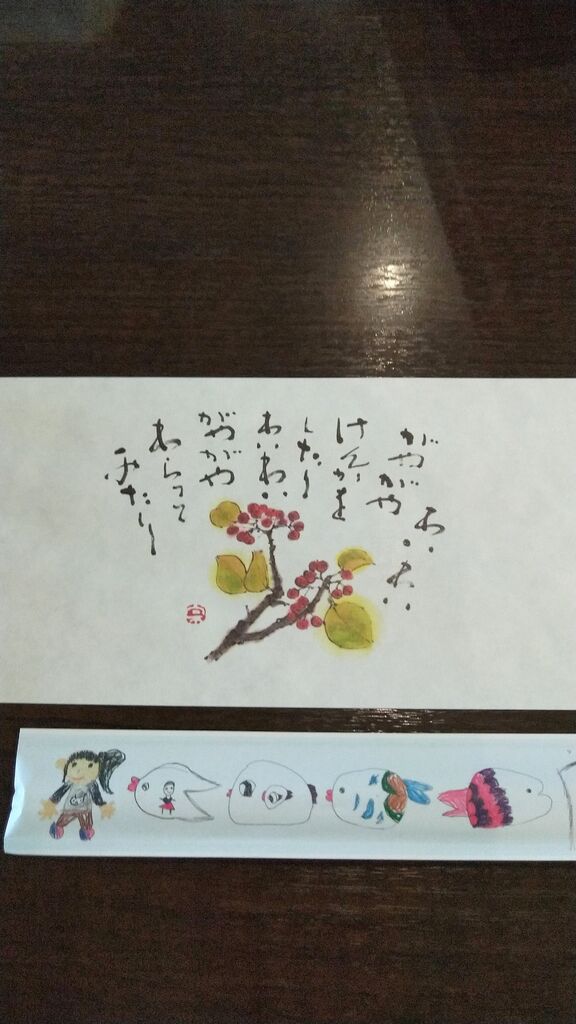 わいわい
がやがや
けんかを
したり
わいわい
がやがや
わらって
みたり